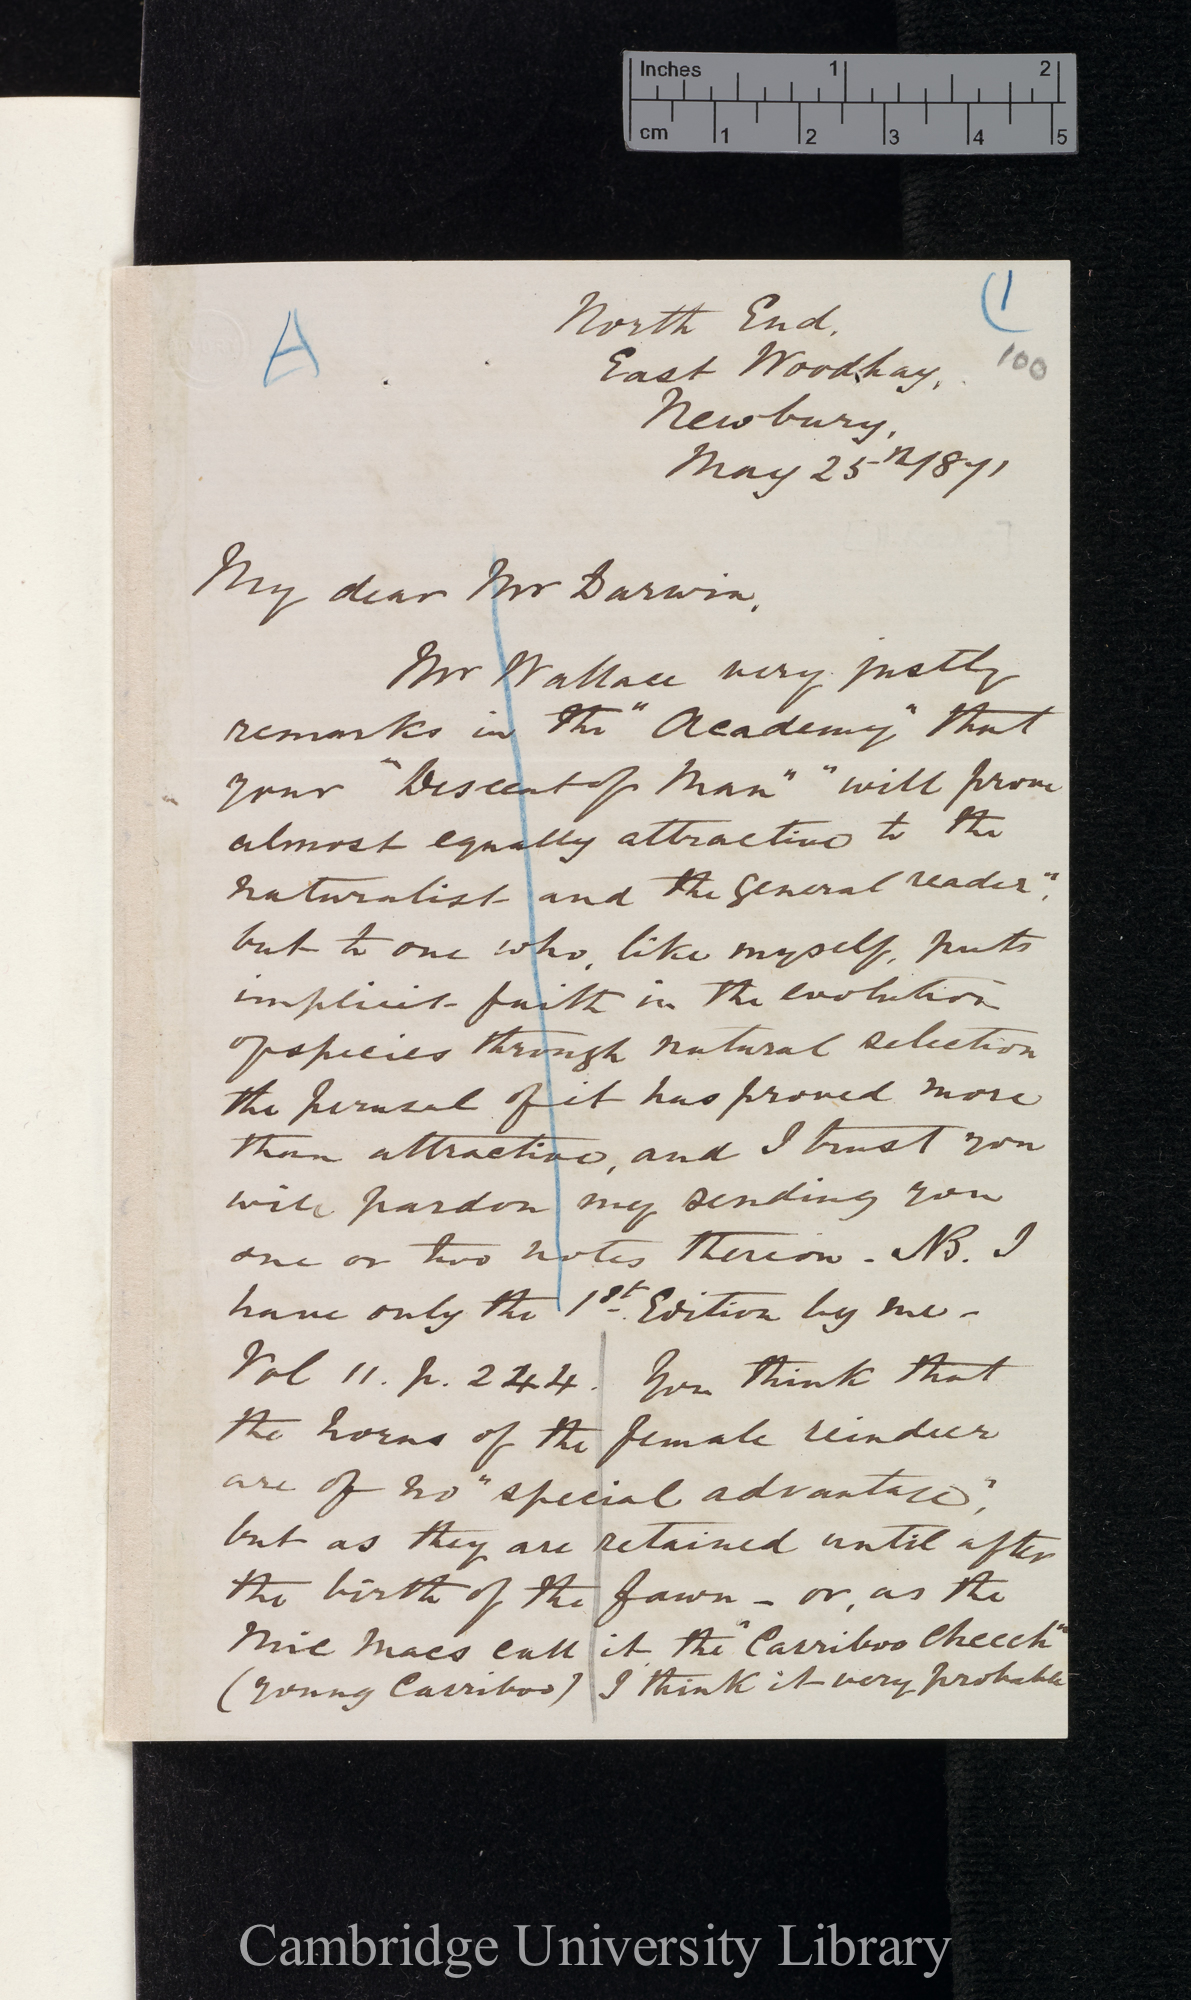 Inches 1 2
cm 1 2 3 4 5
A
(1
100
North End.
East Woodhay,
Newbury,
May 25th/871
My dear Mr Darwin,
Mr Wallace very justly
remarks in the "Academy" that
your "Descent of Man" "will prove
almost equally attractive to the
naturalist and the general reader".
but to one who, like myself, puts
implicit faith in the evolution
of species through natural selection
the perusal of it has proved more
than attractive, and I trust you
will pardon my sending you
one or two notes thereon - NB. I
have only the 1st. Edition by me -
Vol 11. p. 244. You think that
the horns of the female reindeer
are of no "special advantage",
but as they are retained until after
the birth of the fawn - or, as the
Mic Macs call it the "Carriboo Checch"
(young Carriboo) I think it very probable
Cambridge University Library